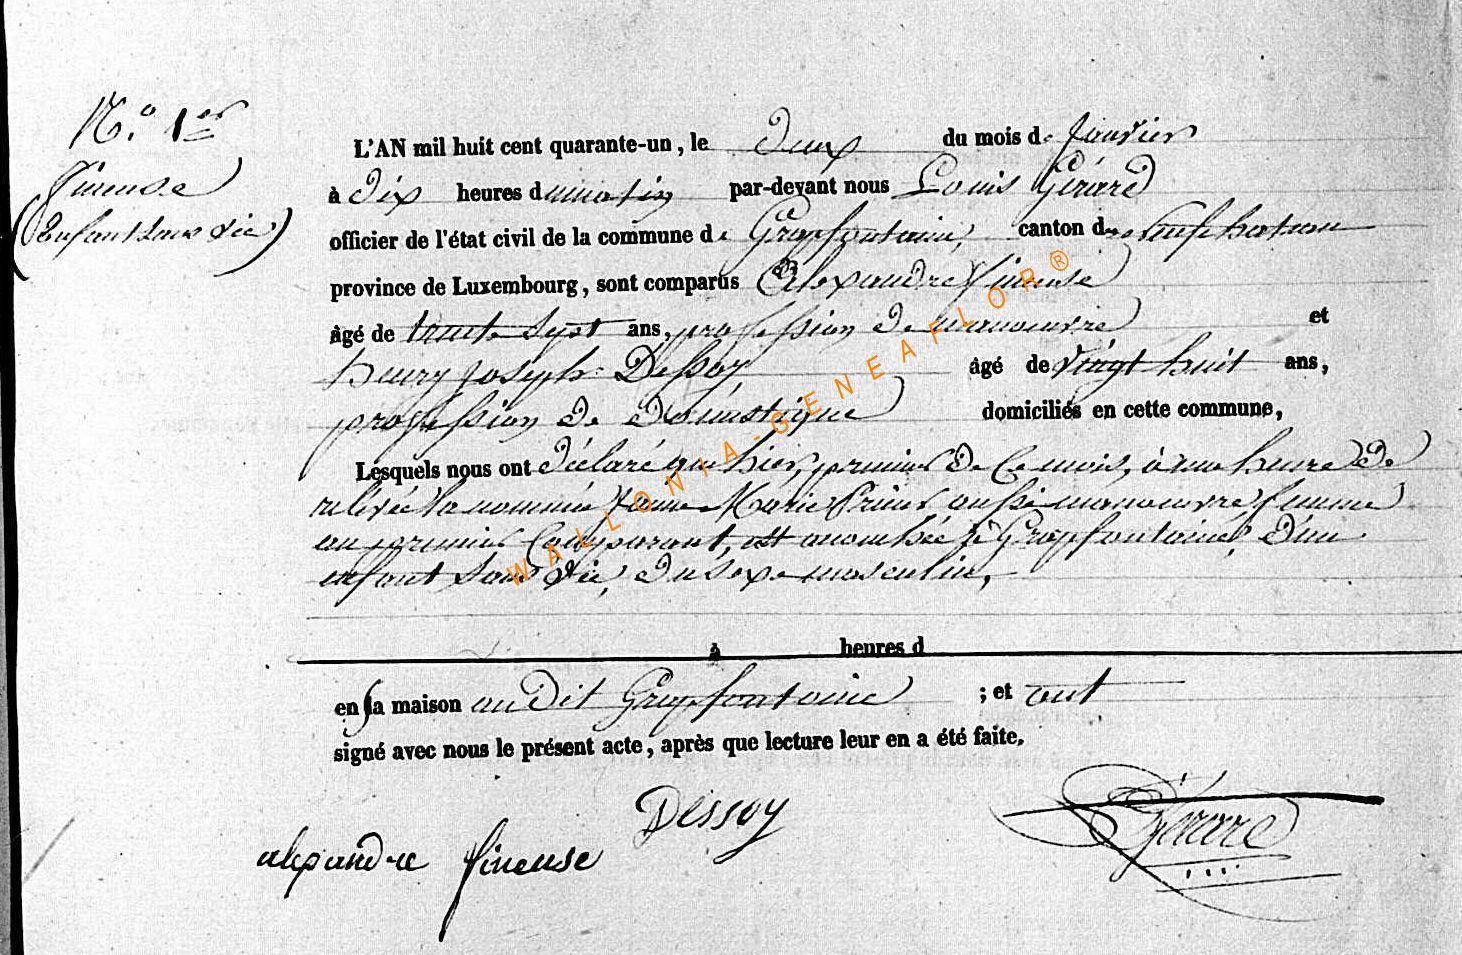 N.° 1er
Fineuse
(Enfant sans vie)
L'AN mil huit cent quarante-un, le deux du mois de Janvier
à dix heures du matin par-devant nous Louis Gérard
officier de l'état civil de la commune de Grapfontaine, canton de neufchateau
province de Luxembourg, sont comparus Alexandre fineuse
âgé de trente sept ans, profession de manoeuvre et
henry joseph Dessoy âgé de vingt huit ans,
profession de Domestique domiciliés en cette commune,
Lesquels nous ont déclaré que hier, premier de Ce mois, à une heure de
relevée la nommée Marie aussi manoeuvre femme
au premier Comparant, est accouchée à Grapfontaine, d'un
enfant sans vie, du sexe masculin,
à heures d
en sa maison au dit Grapfontaine ; et ont
signé avec nous le présent acte, après que lecture leur en a été faite.
Dessoy
Gérard
alexandre fineuse
WALLONIA-GENEAFLOR®